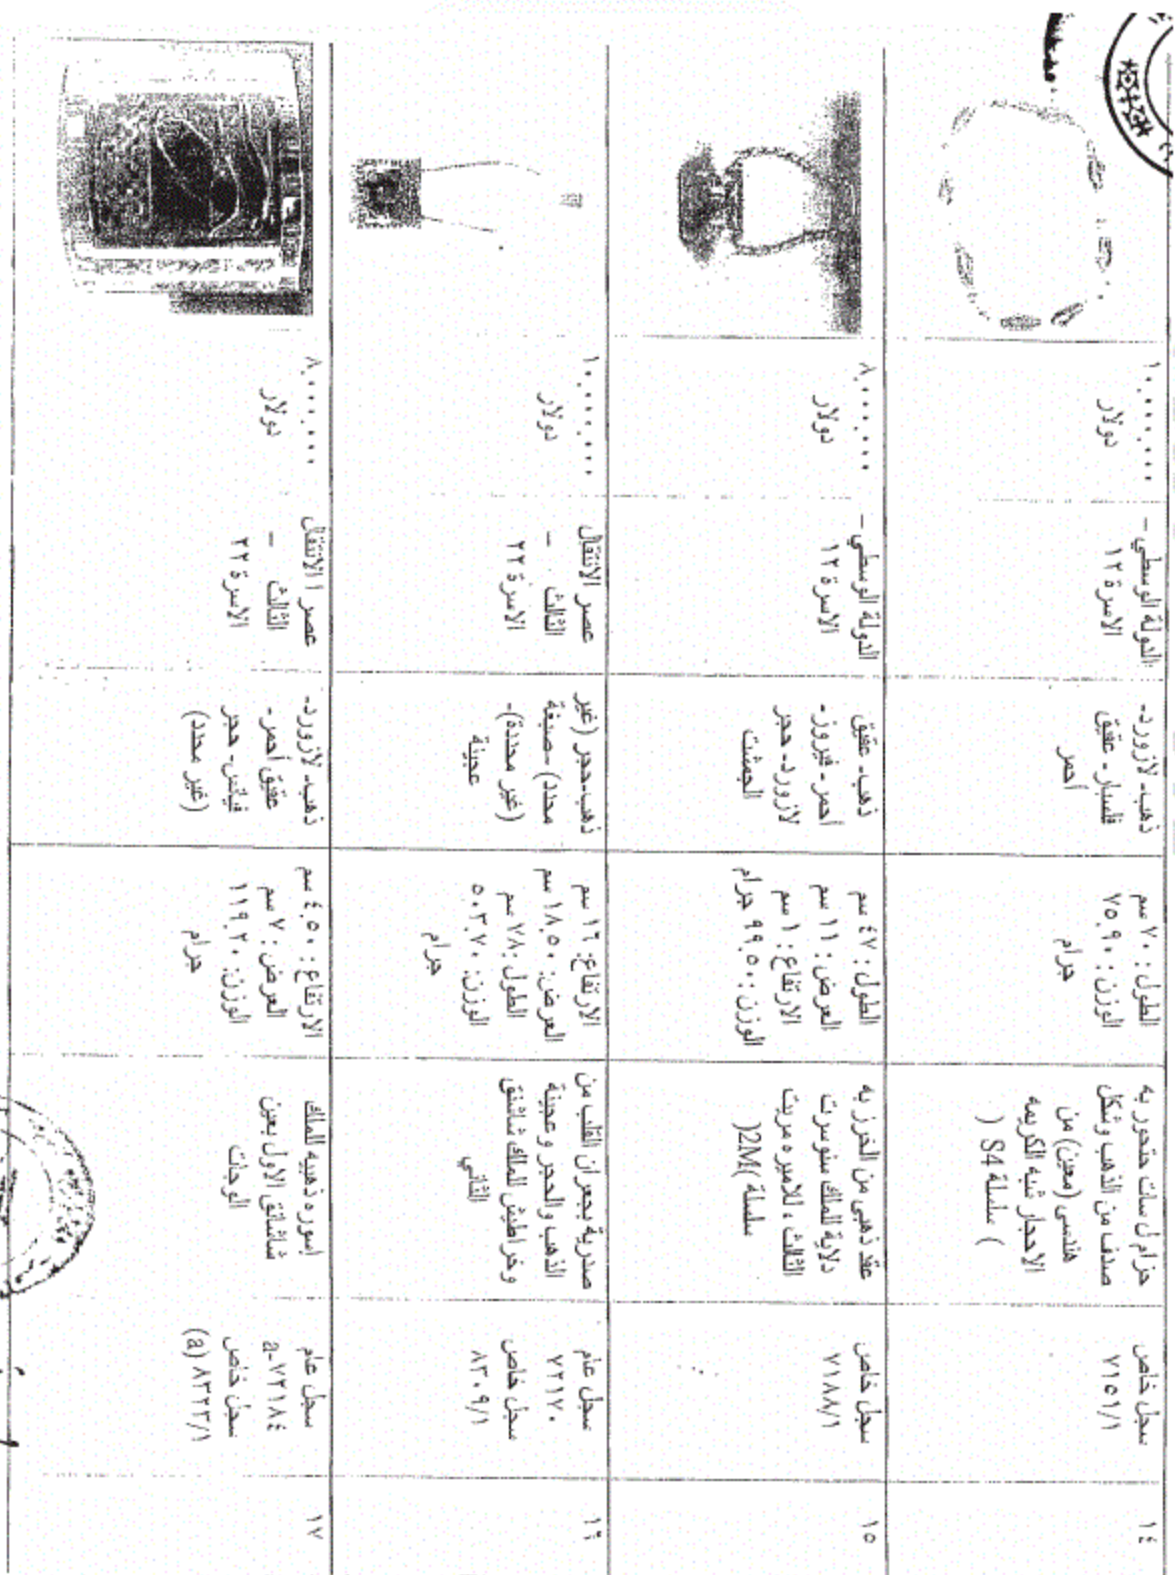 ١٤
سجل خاص
٧١٥١/١
حزام ل سات حتحور به
صدف من الذهب وشكل
هندسى (معين) من
الاحجار شبه الكريمه
( سلسلة S4 )
الطول : ٧٠ سم
الوزن : ٧٥.٩٠
جرام
ذهب- لازورد-
فلسبار - عقيق
أحمر
الدولة الوسطي –
الاسرة ١٢
١٠.٠٠٠.٠٠٠
دولار
١٥
سجل خاص
٧١٨٨/١
عقد ذهبى من الخرز به
دلاية للملك سنوسرت
الثالث ، للاميره مريت
سلسلة )2M(
الطول : ٤٧ سم
العرض : ١١ سم
الارتفاع : ١ سم
الوزن : ٩٩.٥٠ جرام
ذهب- عقيق
أحمر - فيروز -
لازورد- حجر
الجمشت
الدولة الوسطي –
الاسرة ١٢
٨.٠٠٠.٠٠٠
دولار
١٦
سجل عام
٧٢١٧٠
سجل خاص
٨٣٠٩/١
صدرية بجعران القلب من
الذهب والحجر وعجينة
وخراطيش للملك شاشنق
الثاني
الارتفاع: ١٦ سم
العرض: ١٨.٥٠ سم
الطول : ٧٨ سم
الوزن: ٥٠٣.٧٠
جرام
ذهب-حجر (غير
محدد) -صبغة
(غير محددة)-
عجينة
عصر الانتقال
الثالث –
الاسرة ٢٢
١٠.٠٠٠.٠٠٠
دولار
١٧
سجل عام
٧٢١٨٤-a
سجل خاص
٨٣٢٣/١ (a)
اسوره ذهبيه للملك
شاشانق الاول بعين
الوجات
الارتفاع : ٤.٥٠ سم
العرض : ٧ سم
الوزن: ١١٩.٢٠
جرام
ذهب- لازورد-
عقيق أحمر -
فيانس- حجر
(غير محدد)
عصر ا الانتقال
الثالث –
الاسرة ٢٢
٨.٠٠٠.٠٠٠
دولار